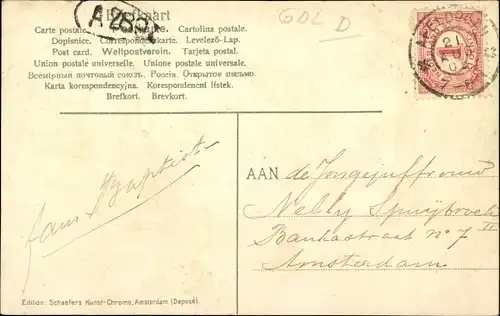 Briefkaart
Carte postale. Cartolina postale.
Dopisnice. Correspondenzkarte. Levelező-Lap.
Post card. Weltpostverein. Tarjeta postal.
Union postale universelle. Unione postale universale.
Всемірный почтовый союзъ. Россія. Открытое письмо.
Karta korespondencyjna. Korespondencni lístek.
Brefkort. Brevkort.
GDL D
21
1
AAN de Jongejuffrouw
Nelly Spruijtbroek
Bankastraat no 7 II
Amsterdam
Edition: Schaefers Kunst-Chromo, Amsterdam (Deposé)